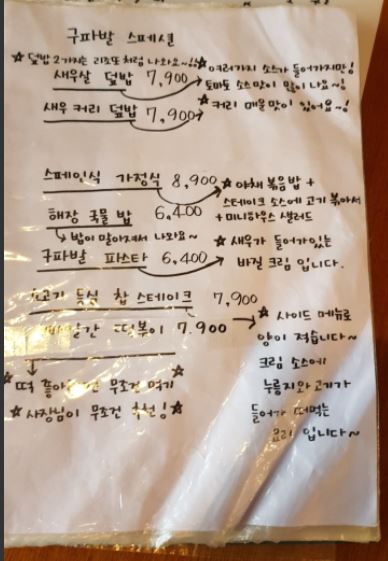 구파발 스페셜
☆ 덮밥 2가지는 리조또 처럼 나와요~!☆
☆ 여러가지 소스가 들어가지만!
토마토 소스맛이 많이 나요~!
새우살 덮밥 7,900
새우 커리 덮밥 7,900
☆ 커리 매운맛이 있어요~!
스페인식 가정식 8,900
☆ 야채 볶음밥 +
스테이크 소스에 고기 볶아서
+ 미니하우스 샐러드
해장 국물 밥 6,400
↳ 밥이 말아져서 나와요~
구파발 파스타 6,400
☆ 새우가 들어가있는
바질 크림 입니다.
고기 등심 찹 스테이크 7,900
☆ 사이드 메뉴로
양이 적습니다~
빨간 떡볶이 7.900
크림 소스에
누룽지와 고기가
들어가 떠먹는
요리 입니다~
☆ 떡 무조건 먹기
☆ 사장님이 무조건 추천! ☆